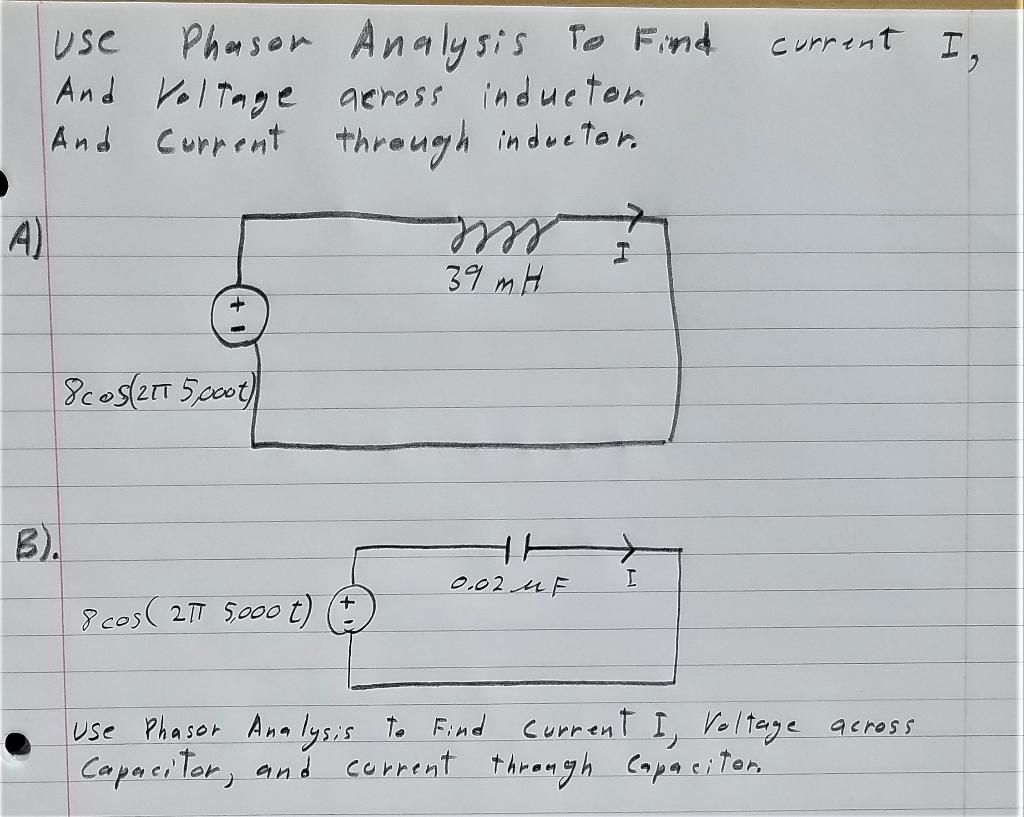 Use Phasor Analysis To Find current I,
And Voltage across inductor.
And Current through inductor.
A)
I
39 mH
+
-
8cos(2π 5,000t)
B).
0.02 μF
I
8cos( 2π 5,000 t)
+
-
Use Phasor Analysis To Find Current I, Voltage across
Capacitor, and current through Capacitor.